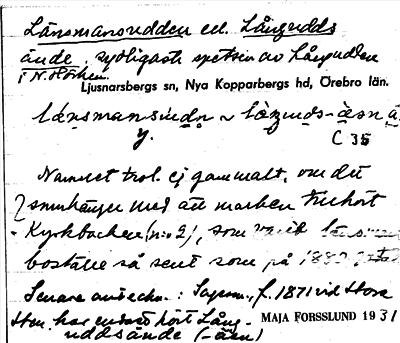 Länsmansudden el. Långudds
ände, sydligaste spetsen av Långudden
i N. Hörken.
Ljusnarsbergs sn, Nya Kopparbergs hd, Örebro län.
y.
C 35
Namnet trol. ej gammalt, om det
sammanhänger med att marken tillhört
Kyrkbacken (n:o 2), som varit
boställe så sent som på 1880-talet
Senare anteckn.: Sagesm., f. 1871 vid Stora
Hon har endast hört Lång-
uddsände (-äen)
MAJA FORSSLUND 1931